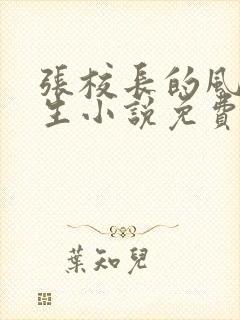 張校長的風
生小說免費
葉知兒